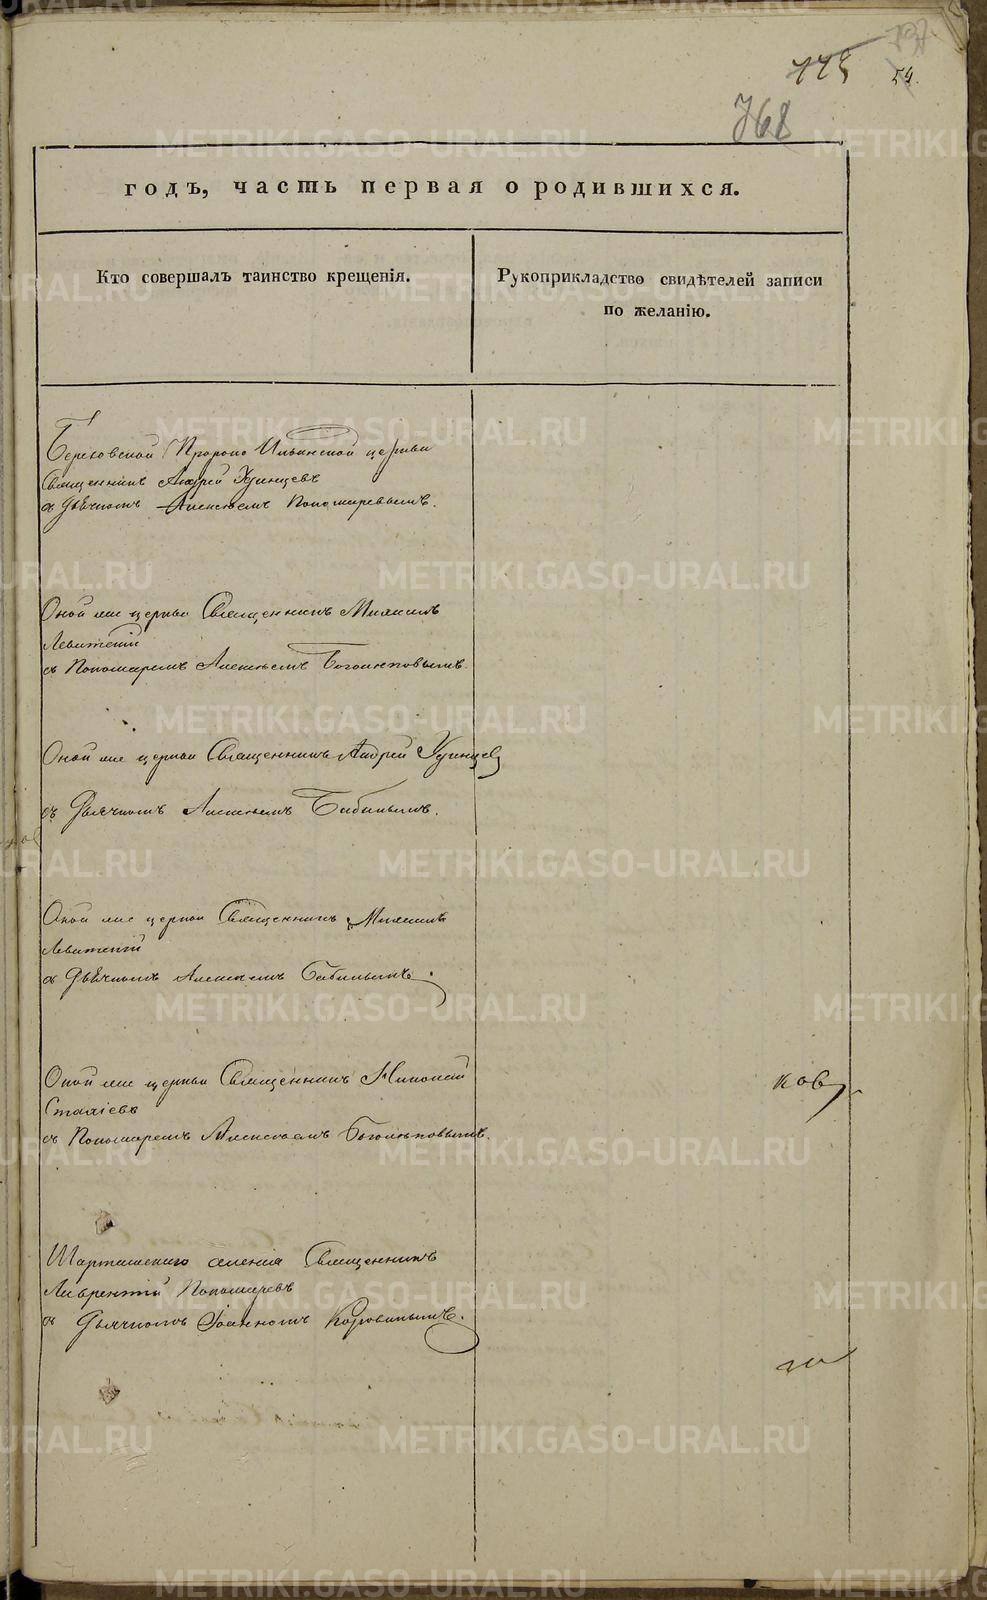 54.
768
годъ, часть первая о родившихся.
Кто совершалъ таинство крещенія.
Рукоприкладство свидѣтелей записи
по желанію.
Березовской Пророко Ильинской церкви
Священникъ Андрей Удинцевъ
съ Дьячкомъ Алексѣемъ Пономаревымъ.
Оной же церкви Священникъ Михаилъ
Левитскій
съ Пономаремъ Алексѣемъ Боголѣповымъ.
Оной же церкви Священникъ Андрей Удинцев
съ Дьячкомъ Алексѣемъ Бабинымъ.
Оной же церкви Священникъ Михаилъ
Левитскій
съ Дьячкомъ Алексѣемъ Бабинымъ.
Оной же церкви Священникъ Николай
съ Пономаремъ Алексѣемъ Боголѣповымъ.
ковъ
Шарташскаго селенія Священникъ
Лаврентій Пономаревъ
съ Дьячкомъ Іоанномъ Коровинымъ.
METRIKI.GASO-URAL.RU